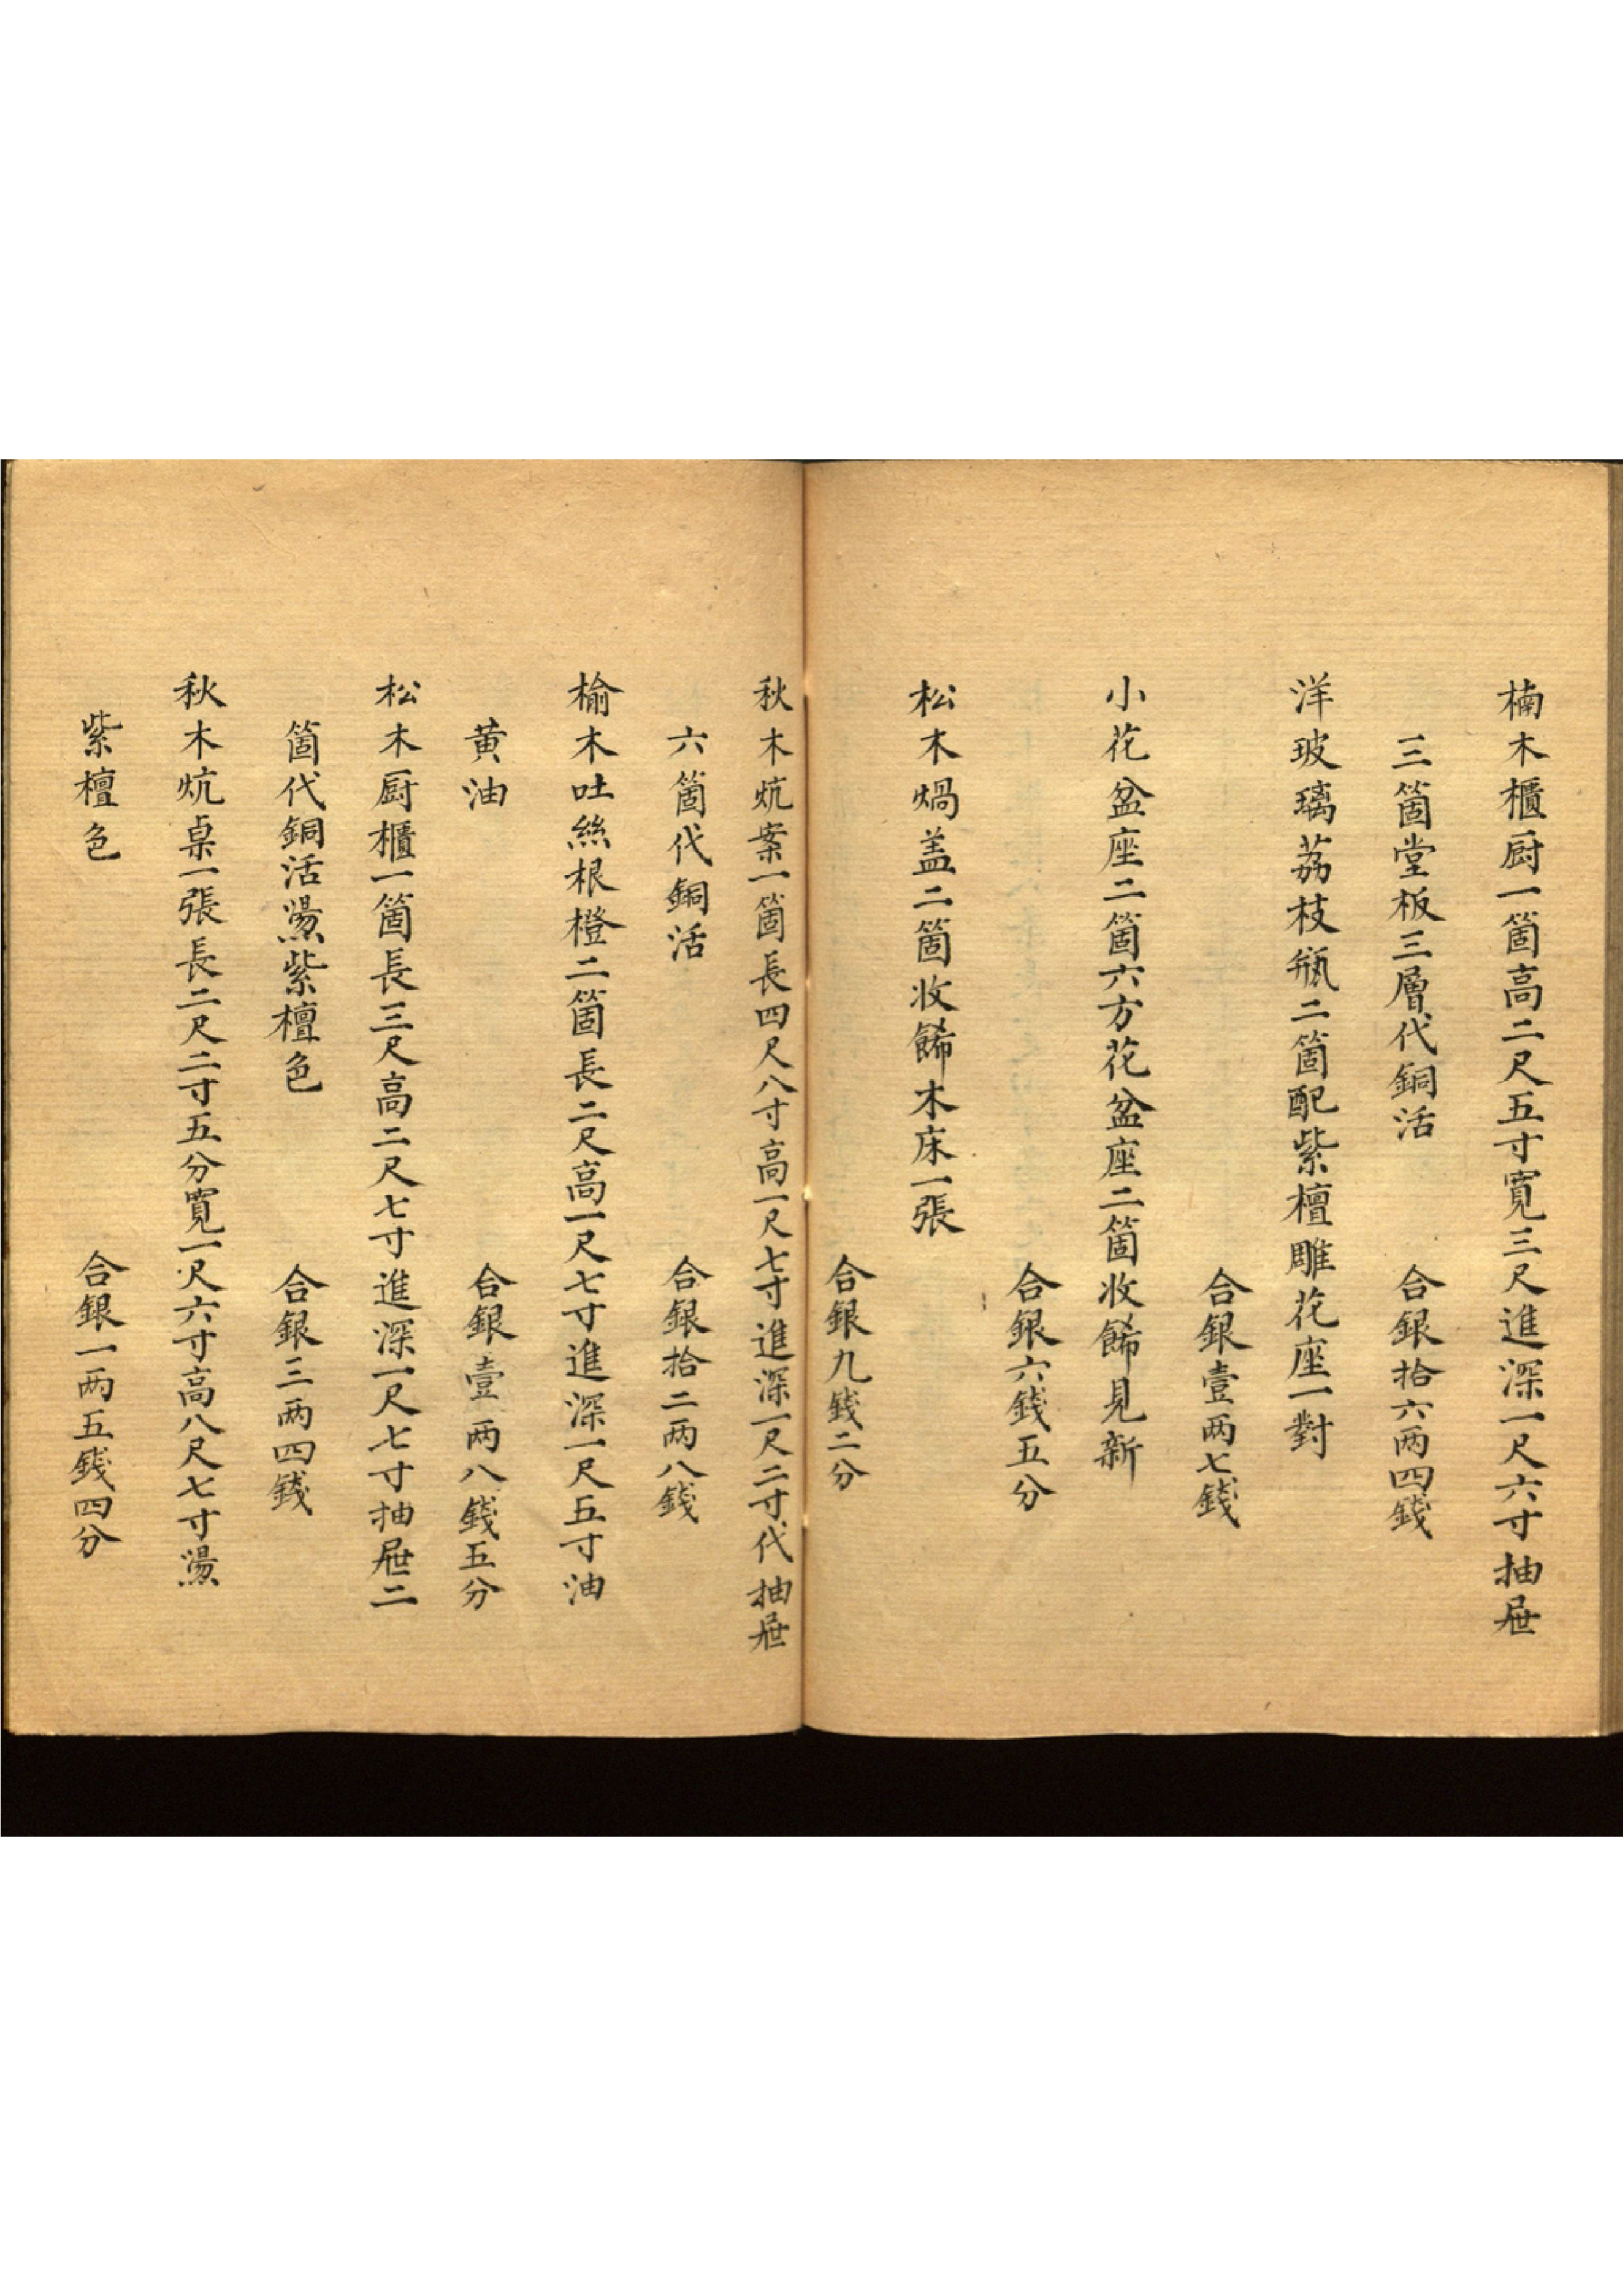 楠木櫃厨一箇高二尺五寸寬三尺進深一尺六寸抽屉
三箇堂板三層代銅活
合銀拾六两四錢
洋玻璃荔枝瓶二箇配紫檀雕花座一對
合銀壹两七錢
小花盆座二箇六方花盆座二箇收餙見新
合銀六錢五分
松木焬盖二箇收餙木床一張
合銀九錢二分
秋木炕案一箇長四尺八寸高一尺七寸進深一尺二寸代抽屉
六箇代銅活
合銀拾二两八錢
榆木吐絲根橙二箇長二尺高一尺七寸進深一尺五寸油
黄油
合銀壹两八錢五分
松木厨櫃一箇長三尺高二尺七寸進深一尺七寸抽屉二
箇代銅活燙紫檀色
合銀三两四錢
秋木炕桌一張長二尺二寸五分寬一尺六寸高八尺七寸燙
紫檀色
合銀一两五錢四分